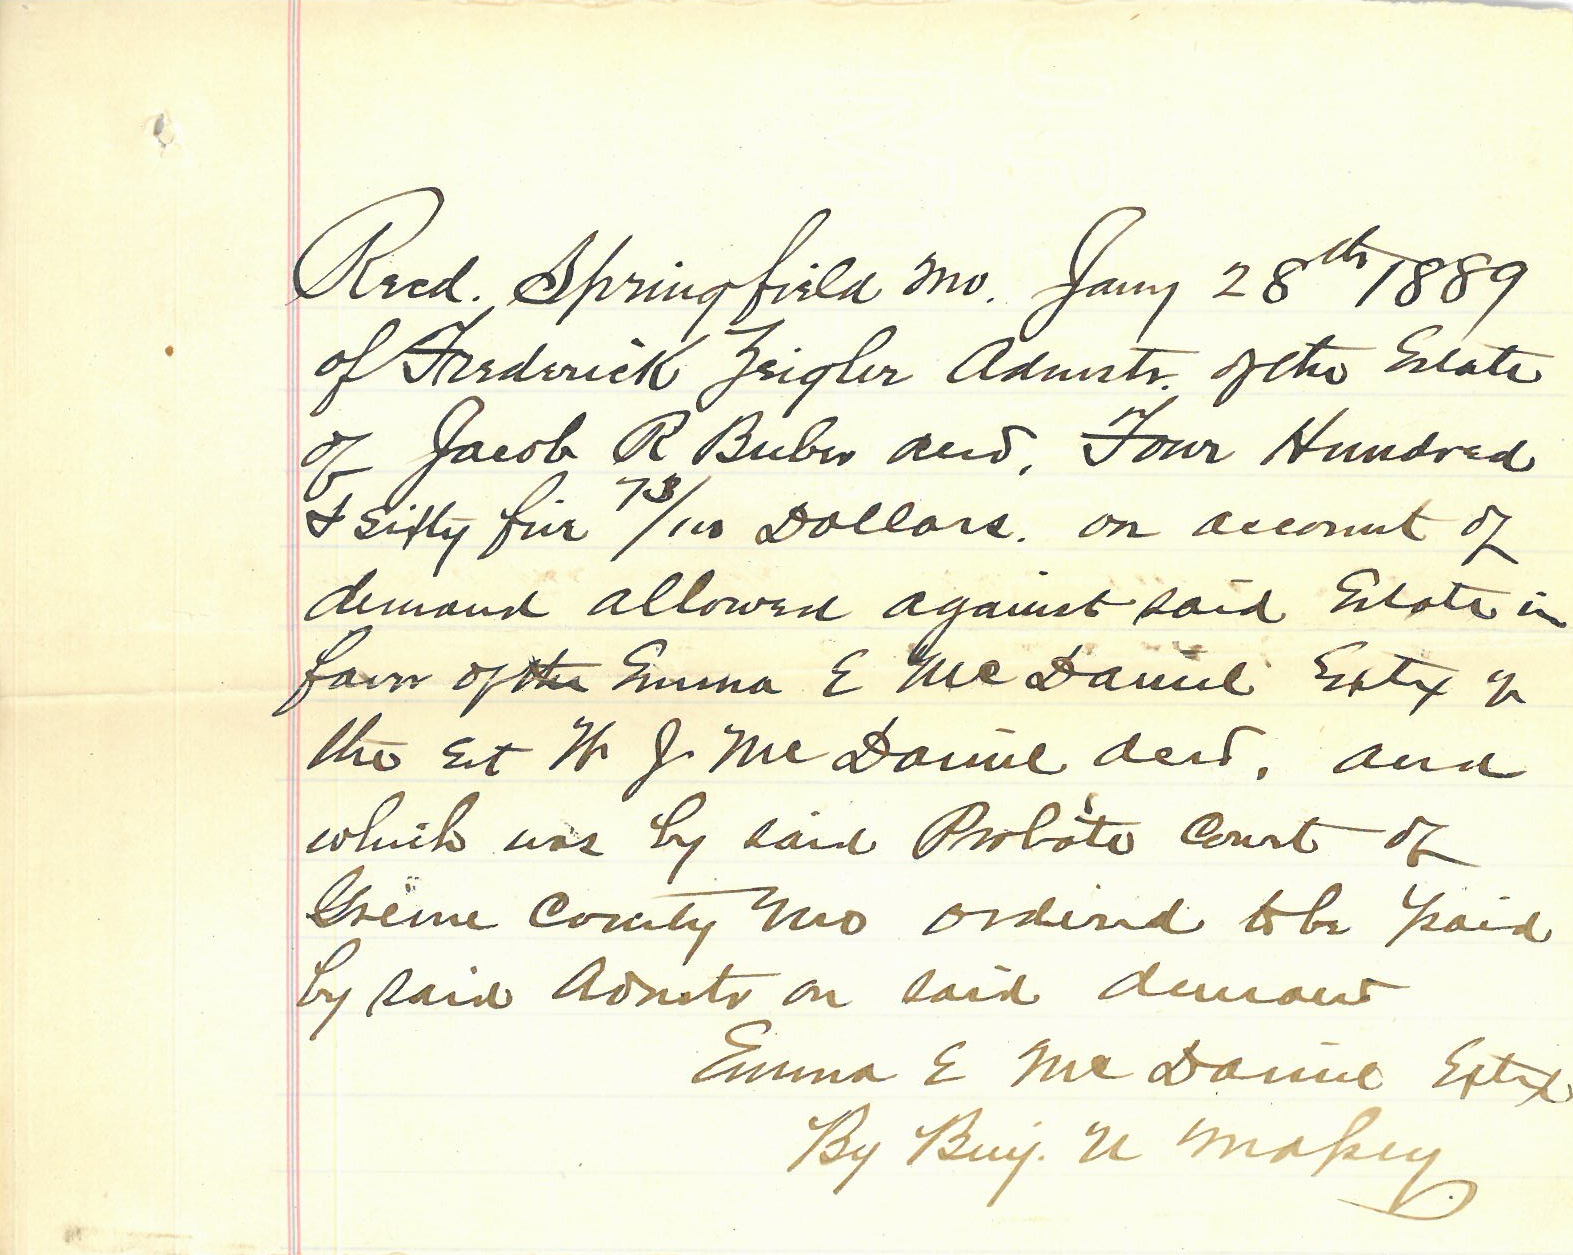 Recd. Springfield Mo. Jany 28th 1889
of Frederick Zeigler Admstr. of the Estate
of Jacob R decd, Four Hundred
& sixty five 73/100 Dollars. on account of
demand allowed against said Estate in
favor of the Emma E McDaniel Extx of
the Est W J. McDaniel decd, and
which was by said Probate Court of
Greene County Mo ordered to be paid
by said Admstr on said demand
Emma E McDaniel Extx
By Benj. U Massey